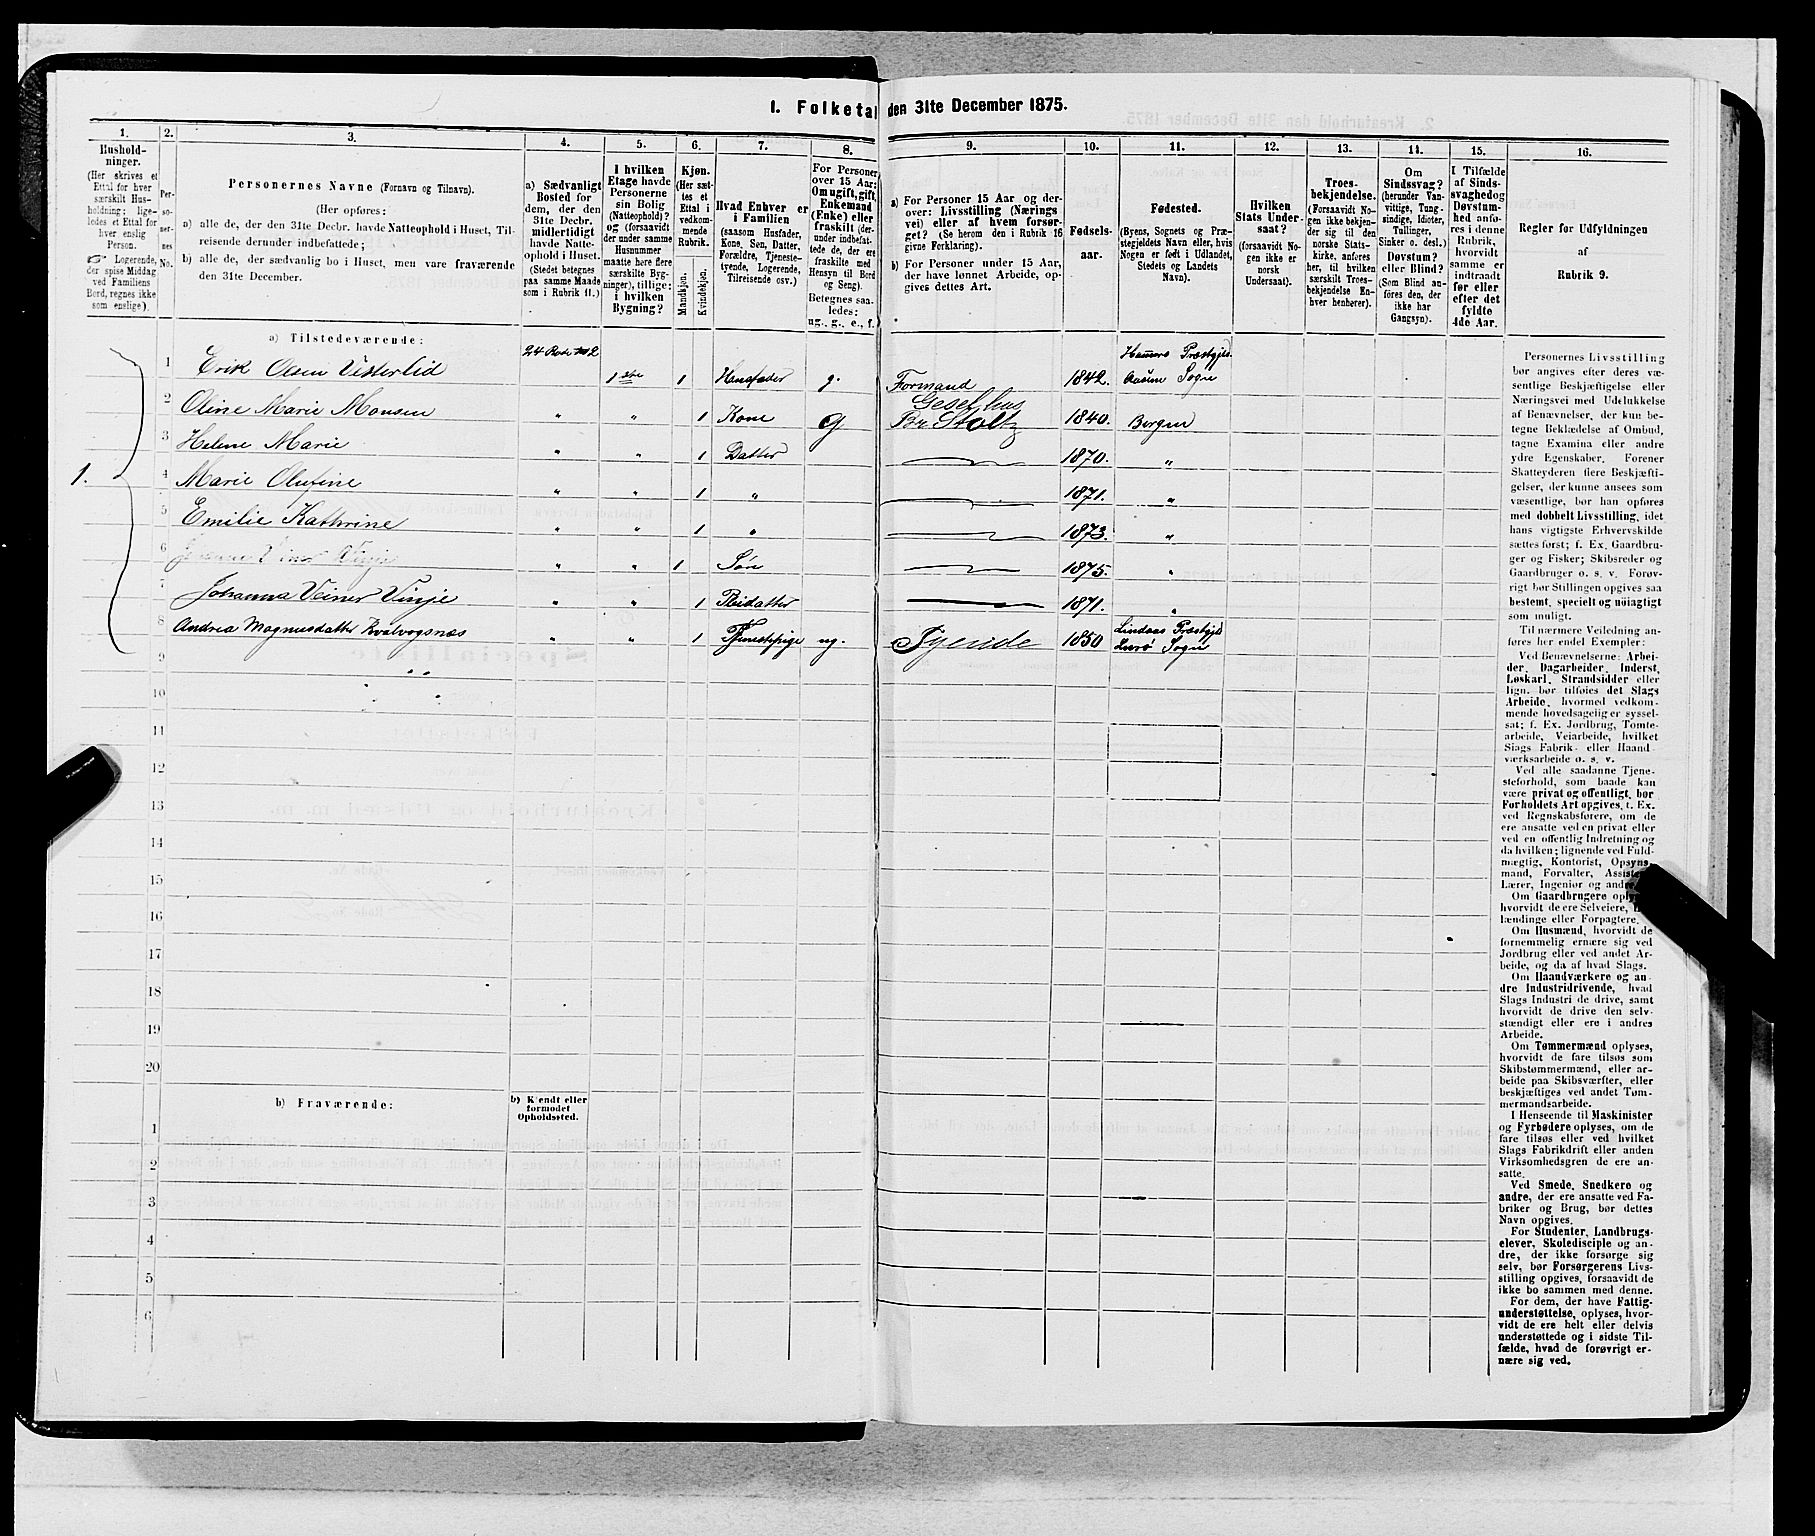 1. Folketal den 31te December 1875.
1.
Hushold-
ninger.
(Her skrives et
Ettal for hver
særskilt Hus-
holdning; lige-
ledes et Ettal for
hver enslig
Person.
☞ Logerende,
der spise Middag
ved Familiens
Bord, regnes ikke
som enslige).
2.
Per-
so-
ner-
nes
No.
3.
Personernes Navne (Fornavn og Tilnavn).
(Her opføres:
a) alle de, der den 31te Decbr. havde Natteophold i Huset, Til-
reisende derunder indbefattede;
b) alle de, der sædvanlig bo i Huset, men vare fraværende
den 31te December.
4.
a) Sædvanligt
Bosted for
dem, der den
31te Decbr.
midlertidigt
havde Natte-
ophold i Huset.
(Stedet betegnes
paa samme Maade
som i Rubrik 11.)
5.
I hvilken
Etage havde
Personerne
sin Bolig
(Natteophold)?
og (forsaavidt
der under samme
Husnummer
maatte høre flere
særskilte Byg-
ninger), tillige:
i hvilken
Bygning?
6.
Kjøn.
(Her sæt-
tes et
Ettal i
vedkom-
mende
Rubrik.
Mandkjøn.
Kvindekjøn.
7.
Hvad Enhver er
i Familien
(saasom Husfader,
Kone, Søn, Datter,
Forældre, Tjeneste-
tyende, Logerende,
Tilreisende osv.)
8.
For Personer
over 15 Aar:
Om ugift, gift,
Enkemand
(Enke) eller
fraskilt (der-
under indbefat-
tede de, der ere
fraskilte med
Hensyn til Bord
og Seng).
Betegnes saa-
ledes:
ug., g., e., f.
9.
a) For Personer 15 Aar og der-
over: Livsstilling (Nærings
vei) eller af hvem forsør-
get? (Se herom den i Rubrik 16
givne Forklaring).
b) For Personer under 15 Aar,
der have lønnet Arbeide, op-
gives dettes Art.
10.
Fødsels-
aar.
11.
Fødested.
(Byens, Sognets og Præ-
stegjeldets Navn eller, hvis
Nogen er født i Udlandet,
Stedets og Landets
Navn).
12.
Hvilken
Stats Under-
saat?
(forsaavidt No-
gen ikke er
norsk
Undersaat).
13.
Troes-
bekjendelse.
(Forsaavidt No-
gen ikke bekjen-
der sig til den
norske Stats-
kirke, anføres
her, til hvilken
særskilt Troes-
bekjendelse En-
hver henhører).
14.
Om
Sindssvag?
(herunder Van-
vittige, Tung-
sindige, Idioter,
Tullinger,
Sinker o. desl.)
Døvstum?
eller Blind?
(Som Blind an-
føres den, der
ikke har
Gangsyn).
15.
I Tilfælde
af Sinds-
svaghed og
Døvstum-
hed anfø-
res i denne
Rubrik,
hvorvidt
samme er
indtraadt
før eller
efter det
fyldte
4de Aar.
16.
Regler for Udfyldningen
af
Rubrik 9.
a) Tilstedeværende:
1.
1 Erik Olsen Vesterlid 24 Rode No 2 1 ste 1 Husfader g. Formand 1842. Hammers Præstgjeld. Aasene Sogn
2 Oline Marie Monsen " " 1 Kone g Geselhus Stoltz 1840. Bergen
3 Helene Marie " " 1 Datter 1870. "
4 Marie Olufine " " 1 " 1871. "
5 Emilie Kathrine " " 1 " 1873. "
6 " " 1 Søn 1875. "
7 Johanna Veiner Vinje " " 1 Pleidatter 1871. "
8 Andrea Magnusdatter Kvalvogsnæs " " 1 Tjenestepige ug. Tyende 1850 Lindaas Præstgjd Lurø Sogn
9
10
11
12
13
14
15
16
17
18
19
20
b) Fraværende:
b) Kjendt eller
formodet
Opholdssted.
1
2
3
4
5
6
Personernes Livsstilling
bør angives efter deres væ-
sentlige Beskjæftigelse eller
Næringsvei med Udelukkelse
af Benævnelser, der kun be-
tegne Beklædelse af Ombud,
tagne Examina eller andre
ydre Egenskaber. Forener
Skatteyderen flere Beskjæfti-
gelser, der kunne ansees som
væsentlige, bør han opføres
med dobbelt Livsstilling, idet
hans vigtigste Erhvervskilde
sættes først; f. Ex. Gaardbru-
ger og Fisker; Skibsreder og
Gaardbruger o. s. v. Forøv-
rigt bør Stillingen opgives saa
bestemt, specielt og nøiagtigt
som muligt.
Til nærmere Veiledning an-
føres her endel Exempler:
Ved Benævnelserne: Arbei-
der, Dagarbeider, Inderst,
Løskarl, Strandsidder eller
lign. bør tilføies det Slags
Arbeide, hvormed vedkom-
mende hovedsagelig er syssel-
sat; f. Ex. Jordbrug, Tomte-
arbeide, Veiarbeide, hvilket
Slags Fabrik- eller Haand-
værksarbeide o. s. v.
Ved alle saadanne Tjene-
steforhold, som baade kan
være privat og offentligt, bør
Forholdets Art opgives, t. Ex.
ved Regnskabsførere, om de
ere ansatte ved en privat eller
ved en offentlig Indretning og
da hvilken; lignende ved Fuld-
mægtig, Kontorist, Opsyns-
mand, Forvalter, Assistent,
Lærer, Ingeniør og andre.
Om Gaardbrugere oplyses,
hvorvidt de ere Selveiere, Lei-
lændinge eller Forpagtere.
Om Husmænd, hvorvidt de
fornemmelig ernære sig ved
Jordbrug eller ved andet Ar-
beide, og da af hvad Slags.
Om Haandværkere og an-
dre Industridrivende, hvad
Slags Industri de drive, samt
hvorvidt de drive den selv-
stændigt eller ere i andres
Arbeide.
Om Tømmermænd oplyses,
hvorvidt de fare tilsøs som
Skibstømmermænd, eller ar-
beide paa Skibsværfter, eller
beskjæftiges ved andet Tøm-
mermandsarbeide.
I Henseende til Maskinister
og Fyrbødere oplyses, om de
fare tilsøs eller ved hvilket
Slags Fabrikdrift eller anden
Virksomhedsgren de ere an-
satte.
Ved Smede, Snedkere og
andre, der ere ansatte ved Fa-
briker og Brug, bør dettes
Navn opgives.
For Studenter, Landbrugs-
elever, Skoledisciple og an-
dre, der ikke forsørge sig
selv, bør Forsørgerens Livs-
stilling opgives, forsaavidt de
ikke bo sammen med denne.
For dem, der have Fattig-
understøttelse, oplyses, hvor-
vidt de ere helt eller delvis
understøttede og i sidste Til-
fælde, hvad de forøvrigt er-
nære sig ved.